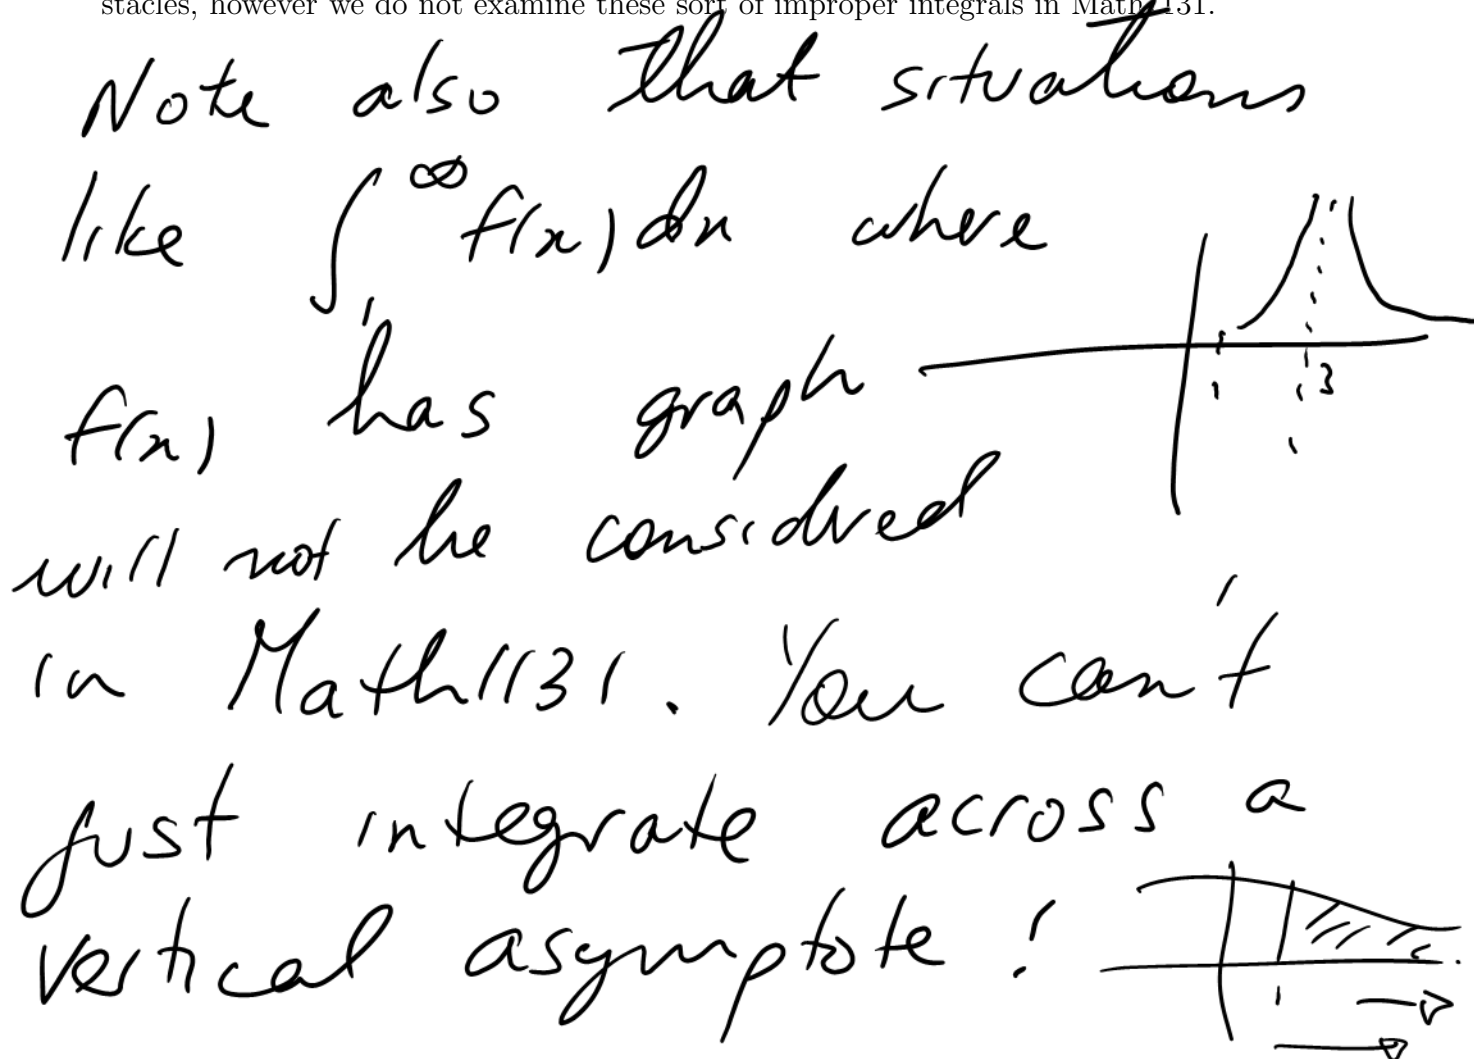 stacles, however we do not examine these sort of improper integrals in Math1131.
Note also that situations
like ∫₁^∞ f(x) dx where
f(x) has graph
1 3
will not be considered
in Math1131. You can't
just integrate across a
vertical asymptote!
1